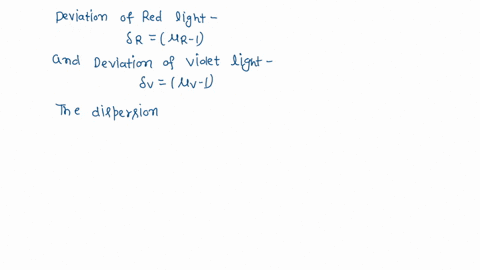 Deviation of Red light -
δR = (μR-1)
And Deviation of violet light -
δv = (μv-1)
The dispersion